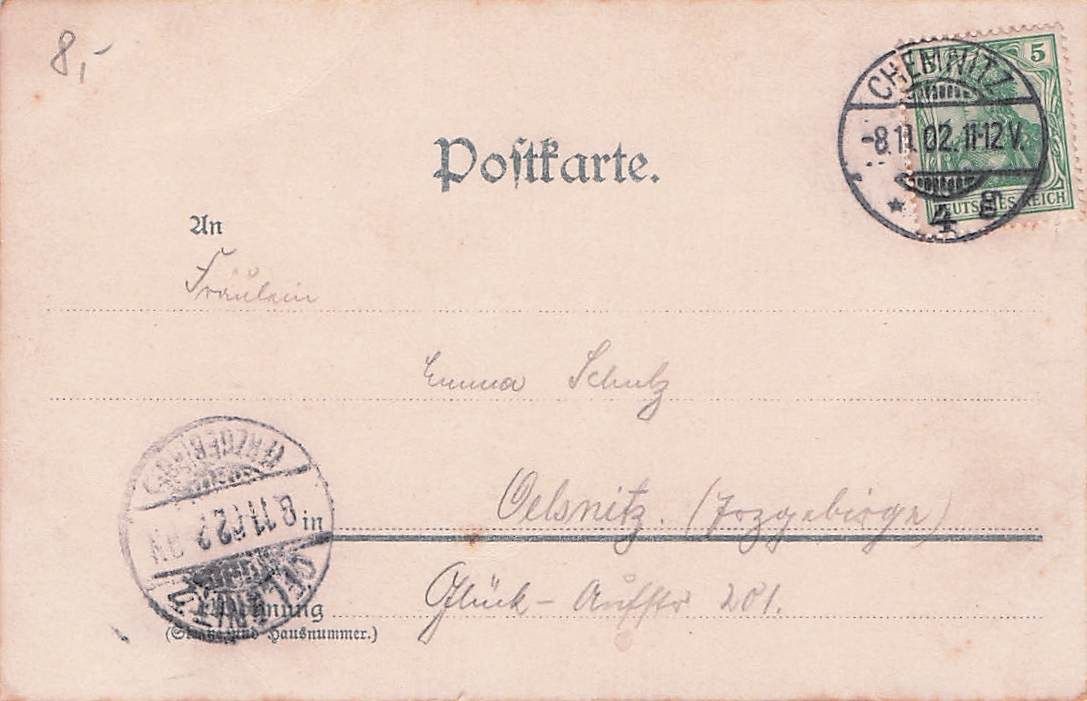 8,-
CHEMNITZ
5
-8.11.02.11-12V.
DEUTSCHES REICH
* 4 g
Postkarte.
An
Fräulein
Emma Schulz
Oelsnitz. (Erzgebirge)
in
Glück-Aufstr 201.
(ERZGEBIRGE)
8.11.02.2
OELSNITZ
Wohnung
(Straße und Hausnummer.)